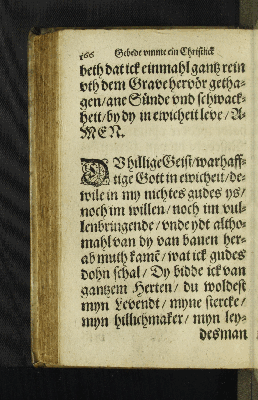 166 Gebede vmme ein Christlick
beth dat ick einmahl gantz rein
vth dem Grave hervör getha-
gen / ane Sünde vnd schwack-
heit / by dy in ewicheit leve / A-
MEN.
DV hillige Geist / warhaff-
tige Gott in ewicheit / de-
wile in my nichtes gudes ys /
noch im willen / noch im vul-
lenbringende / vnde ydt altho-
mahl van dy van bauen her-
ab muth kamē / wat ick gudes
dohn schal / Dy bidde ick van
gantzem Herten / du woldest
myn Levendt / myne stercke /
myn hillichmaker / myn ley-
desman